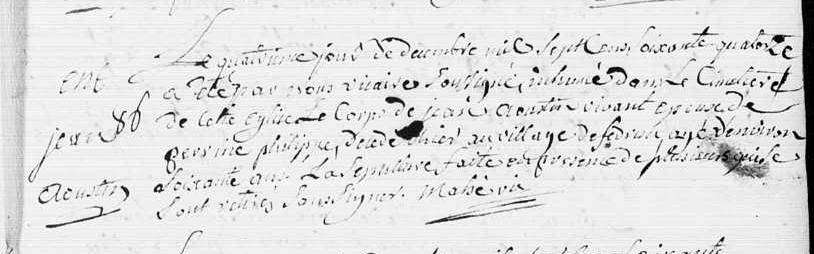 Le quatrieme jour de decembre mil Sept cens soixante quatorze
Ent
a Eté par nous vicaire Soussigné inhumé dans Le Cimetiere
86
de Cette Eglise Le Corps de jean Aoustin vivant Epoux de
jean
perrine philippe, decedé d'hier au village de fedrun, agé d'environ
Aoustin
soixante ans La Sepulture faite en presence de plusieurs qui Se
Sont retirés Soussigner. Mahé vic
soixante